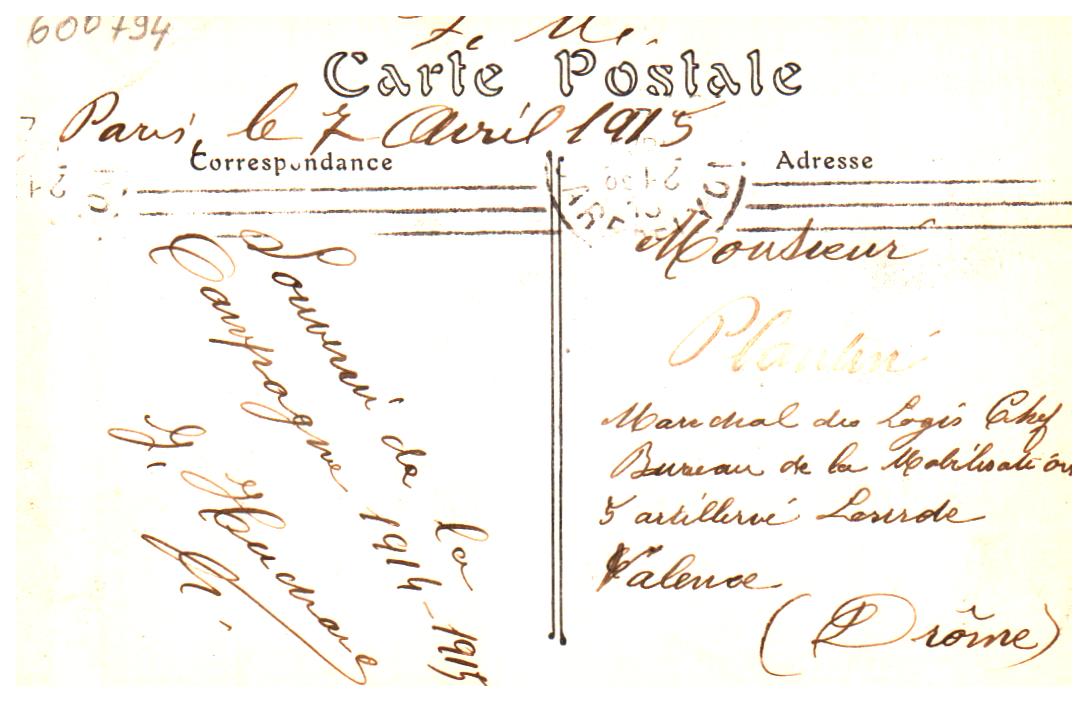 600794
F. M.
Carte Postale
Paris, le 7 Avril 1915
Correspondance
Souvenir de la
Campagne 1914-1915
G.
Adresse
Monsieur
Marechal des Logis Chef
Bureau de la Mobilisation
5 artillerie Lourde
Valence
(Drôme)